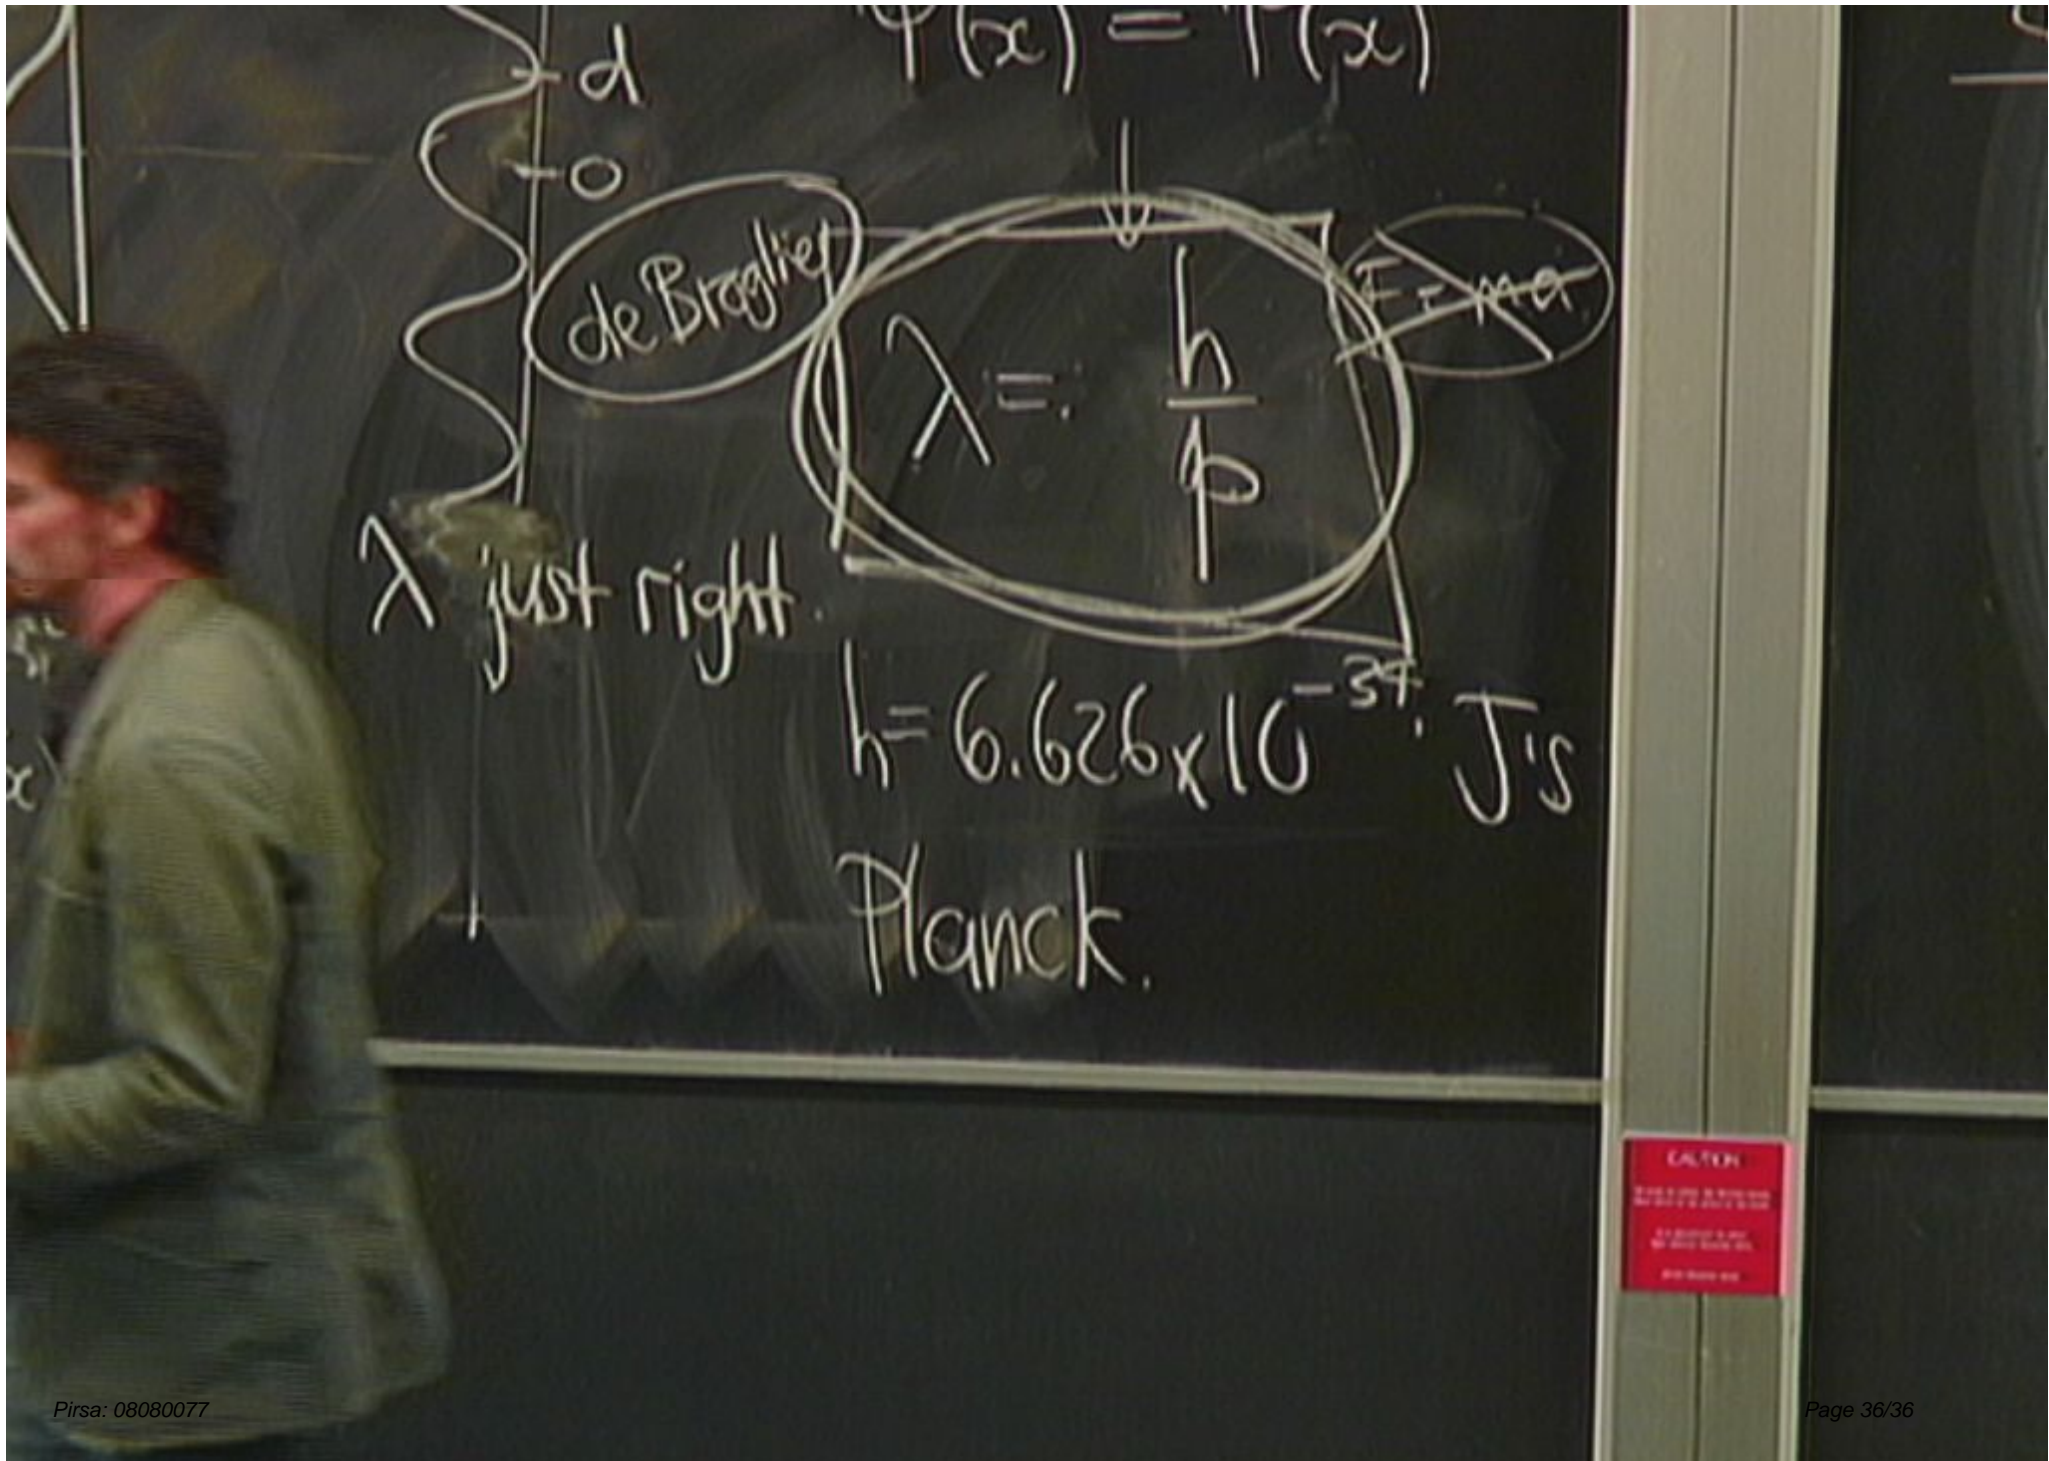 ψ(x) = Ψ(x)
d
0
de Broglie
F = ma
λ = h/p
λ just right.
h = 6.626 x 10^-34 J·s
Planck.
x)
CAUTION
Pirsa: 08080077
Page 36/36